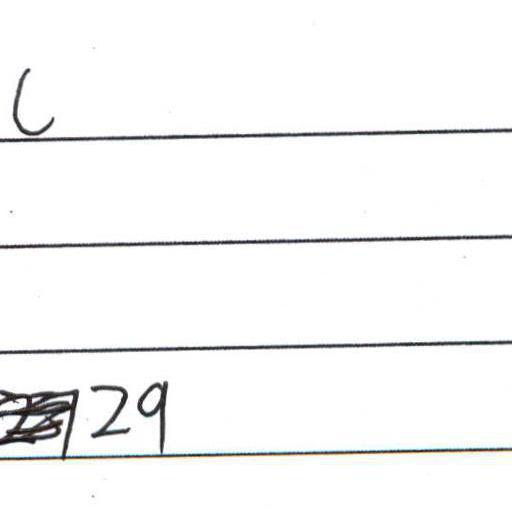 C
29